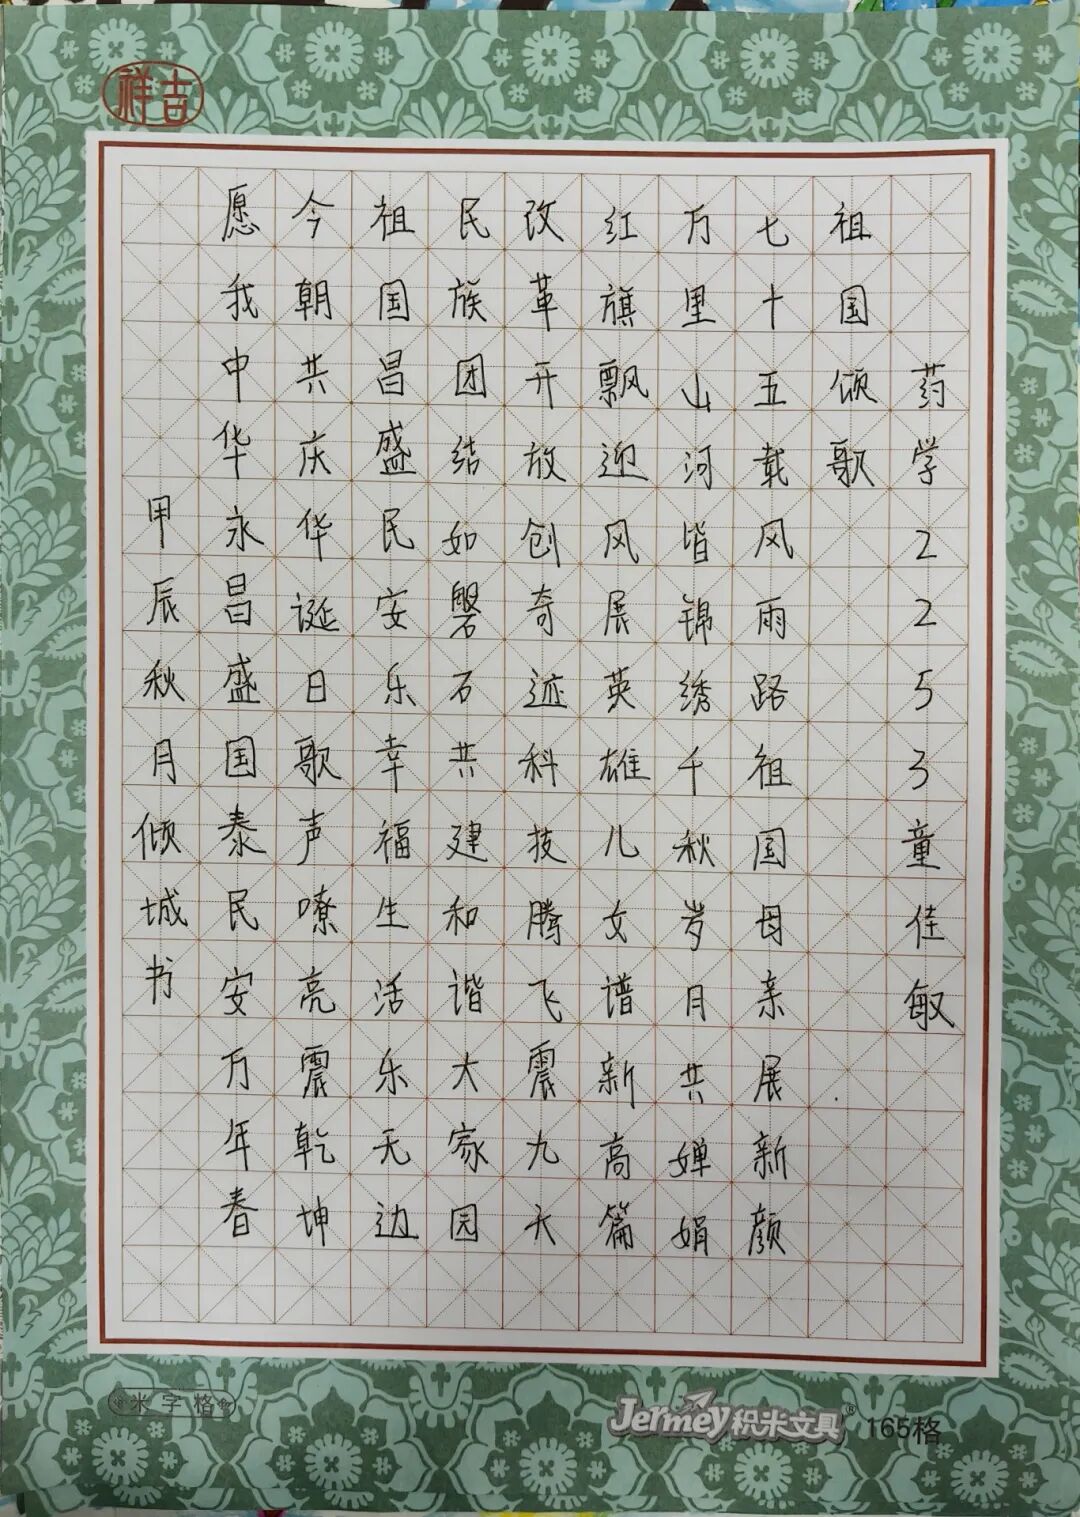 吉祥
药学2253童佳敏
祖国颂歌
七十五载风雨路祖国母亲展新颜
万里山河皆锦绣千秋岁月共婵娟
红旗飘迎风展英雄儿女谱新高篇
改革开放创奇迹科技腾飞震九天
民族团结如磐石共建和谐大家园
祖国昌盛民安乐幸福生活乐无边
今朝共庆华诞日歌声嘹亮震乾坤
愿我中华永昌盛国泰民安万年春
甲辰秋月倾城书
米字格
Jermey积米文具® 165格